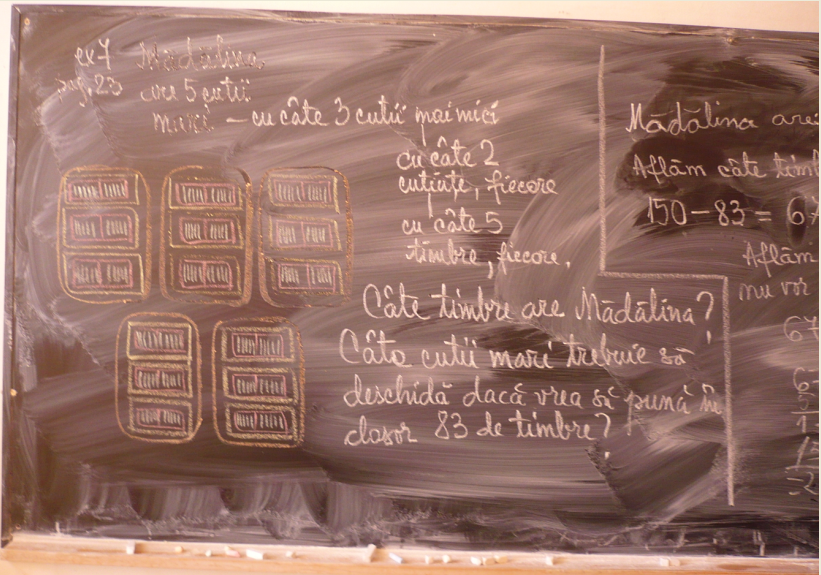 ex 7 Mădălina
pag. 23 are 5 cutii
mari - cu câte 3 cutii mai mici
cu câte 2
cutiuțe, fiecare
cu câte 5
timbre, fiecare.
Câte timbre are Mădălina?
Câte cutii mari trebuie să
deschidă dacă vrea să pună în
clasor 83 de timbre?
Mădălina are
Aflăm câte timb
150 - 83 = 67
Aflăm
nu vor
67
6
1